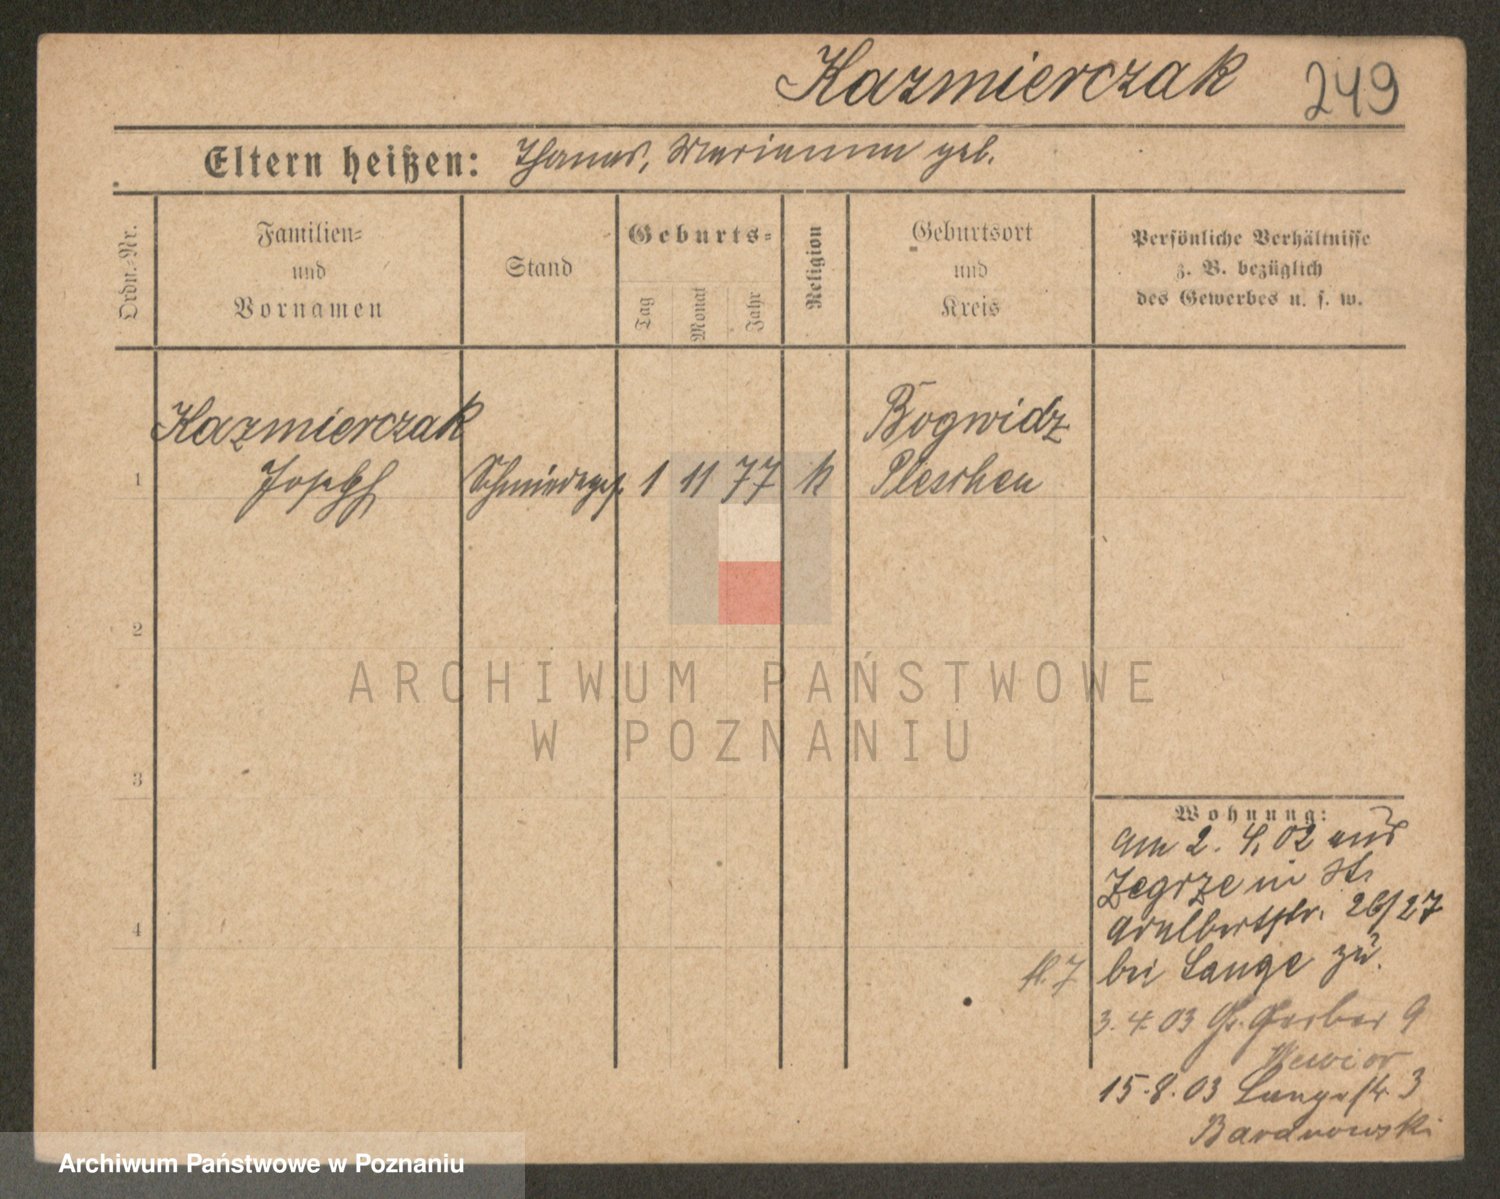 Kazmierczak 249
Eltern heißen: Thomas, Marianna geb.
Ordn.-Nr.
Familien-
und
Vornamen
Stand
Geburts-
Tag
Monat
Jahr
Religion
Geburtsort
und
Kreis
Persönliche Verhältnisse
z. B. bezüglich
des Gewerbes u. s. w.
Kazmierczak
Joseph
1
Schmiedeges. 1 11 77 k
Bogwidz
Pleschen
2
3
4
Wohnung:
Am 2. 4. 02 aus
Zegrze in St.
Adalbertstr. 26/27
bei Lange zu.
fl. 7
3. 4. 03 Gr. Gerber 9
15. 8. 03 Langestr 3
Baranowski
ARCHIWUM PAŃSTWOWE
W POZNANIU
Archiwum Państwowe w Poznaniu